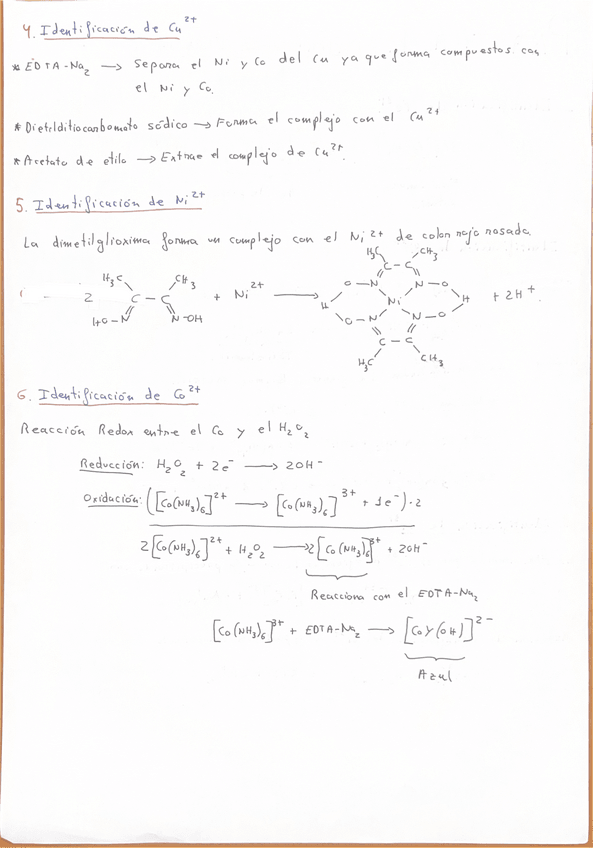 4. Identificación de Cu²⁺
* EDTA-Na₂ → Separa el Ni y Co del Cu ya que forma compuestos con
el Ni y Co.
* Dietilditiocarbomato sódico → Forma el complejo con el Cu²⁺
* Acetato de etilo → Extrae el complejo de Cu²⁺.
5. Identificación de Ni²⁺
La dimetilglioxima forma un complejo con el Ni²⁺ de color rojo rosada
H₃C CH₃ H₃C CH₃
C - C C - C
2 HO-N N-OH + Ni²⁺ → O - N N - O
H Ni H + 2H⁺.
O - N N - O
C - C
H₃C CH₃
6. Identificación de Co²⁺
Reacción Redox entre el Co y el H₂O₂
Reducción: H₂O₂ + 2e⁻ → 2OH⁻
Oxidación: ([Co(NH₃)₆]²⁺ → [Co(NH₃)₆]³⁺ + 1e⁻)·2
2[Co(NH₃)₆]²⁺ + H₂O₂ → 2[Co(NH₃)₆]³⁺ + 2OH⁻
Reacciona con el EDTA-Na₂
[Co(NH₃)₆]³⁺ + EDTA-Na₂ → [CoY(OH)]²⁻
Azul